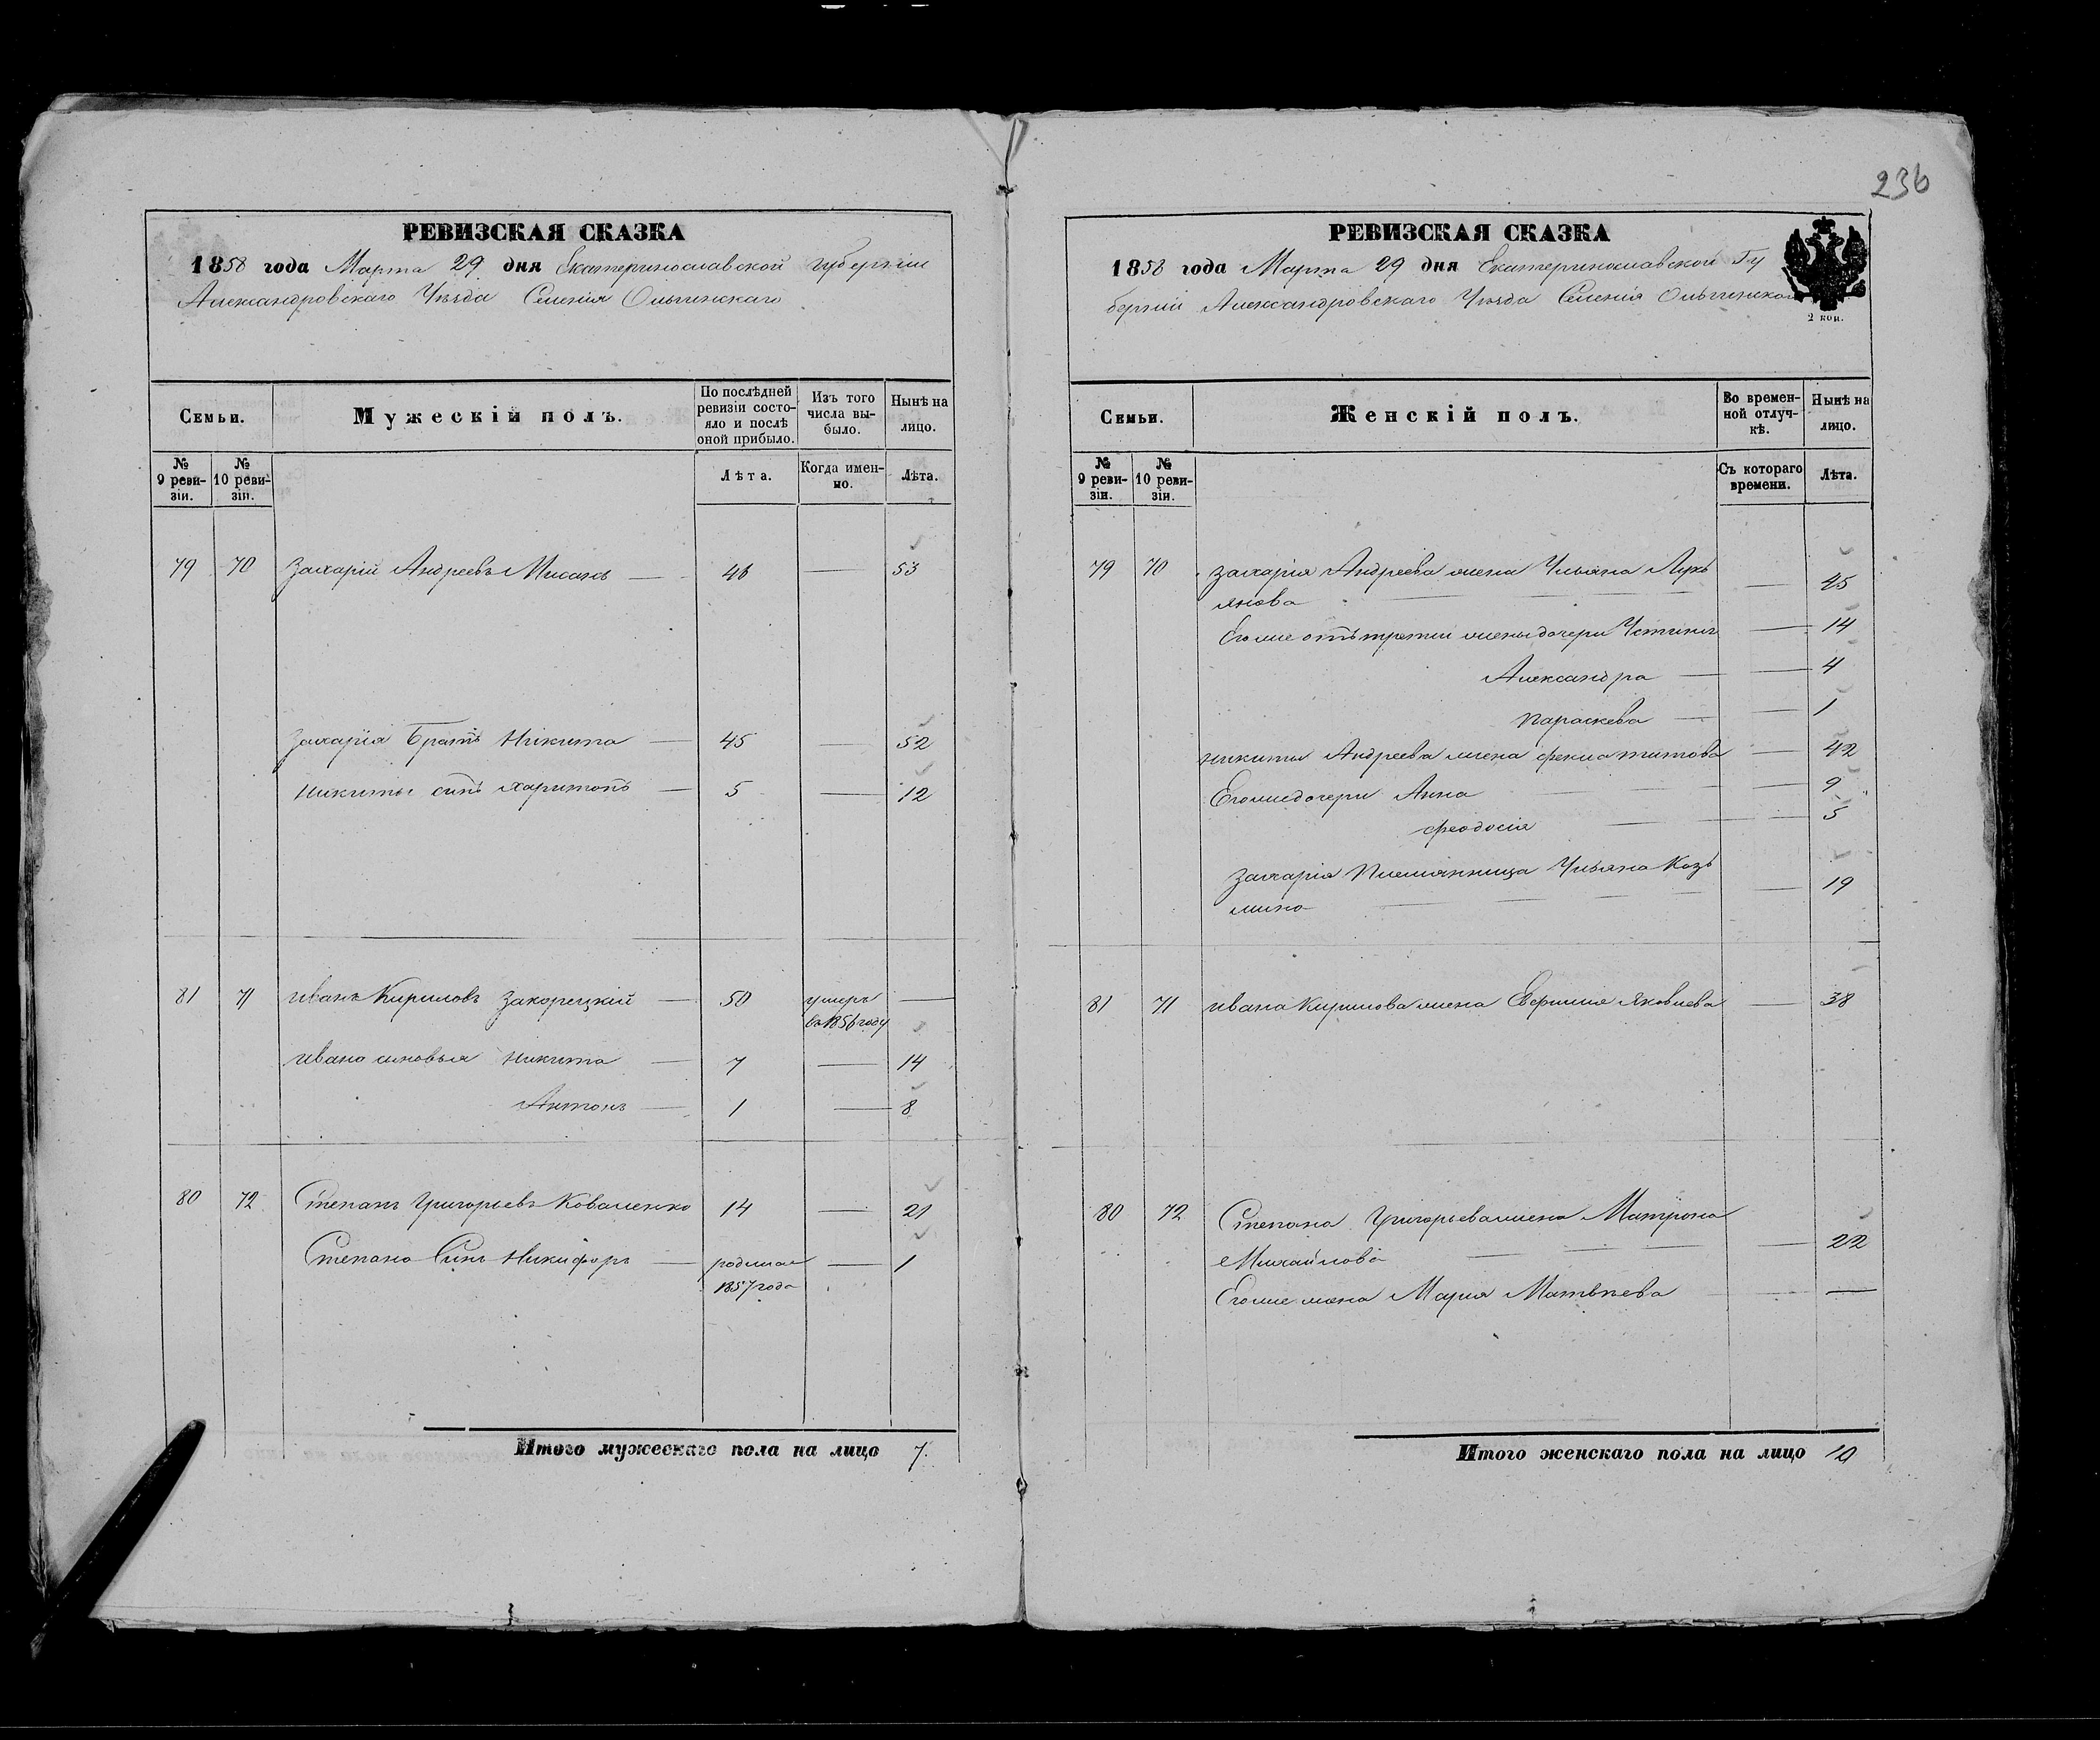 236
РЕВИЗСКАЯ СКАЗКА
1858 года Марта 29 дня Екатеринославской губерніи
Александровскаго Уѣзда Селенія Ольгинскаго
Семьи.
Мужескій полъ.
По послѣдней ревизіи состояло и послѣ оной прибыло.
Изъ того числа выбыло.
Нынѣ на лицо.
№ 9 ревизіи.
№ 10 ревизіи.
Лѣта.
Когда именно.
Лѣта.
79 70 Захарій Андреевъ 46 — 53
Захарія Братъ Никита — 45 — 52
Никиты сынъ Харитонъ — 5 — 12
81 71 Иванъ Кириловъ Закорецкій — 50 умеръ —
въ 1856 году
Ивана сыновья Никита — 7 — 14
Антонъ — 1 — 8
80 72 Степанъ Григорьевъ Коваленко 14 — 21
Степана Сынъ Никифоръ — родился — 1
1857 года
Итого мужескаго пола на лицо 7.
РЕВИЗСКАЯ СКАЗКА
1858 года Марта 29 дня Екатеринославской Гу
берніи Александровскаго Уѣзда Селенія Ольгинского
2 коп.
Семьи.
Женскій полъ.
Во временной отлучкѣ.
Нынѣ на лицо.
№ 9 ревизіи.
№ 10 ревизіи.
Съ котораго времени.
Лѣта.
79 70 Захарія Андреева жена Ульяна Лукь
янова — 45
Его же отъ третьи жены дочери — 14
Александра — — 4
Параскева — — 1
Никиты Андреева жена Фекла Титова — 42
Его же дочери Анна — 9
Феодосія — 5
Захарія Племянница Ульяна Козь
мина — 19
81 71 Ивана Кирилова жена Яковлева — 38
80 72 Степана Григорьева жена Матрона
Михайлова — 22
Его же жена Мария Матвѣева —
Итого женскаго пола на лицо 10